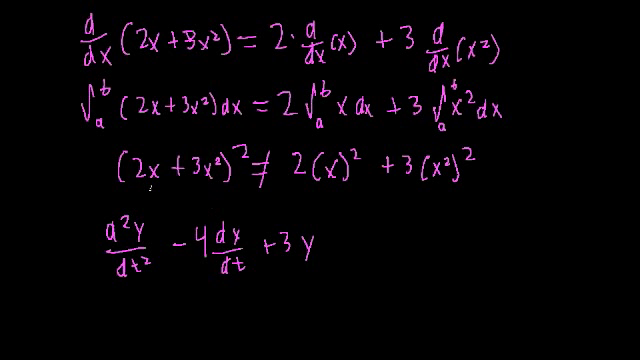 d/dx (2x + 3x²) = 2 · d/dx (x) + 3 d/dx (x²)
∫ₐᵇ (2x + 3x²) dx = 2 ∫ₐᵇ x dx + 3 ∫ₐᵇ x² dx
(2x + 3x²)² ≠ 2(x)² + 3(x²)²
d²y/dt² - 4 dx/dt + 3y